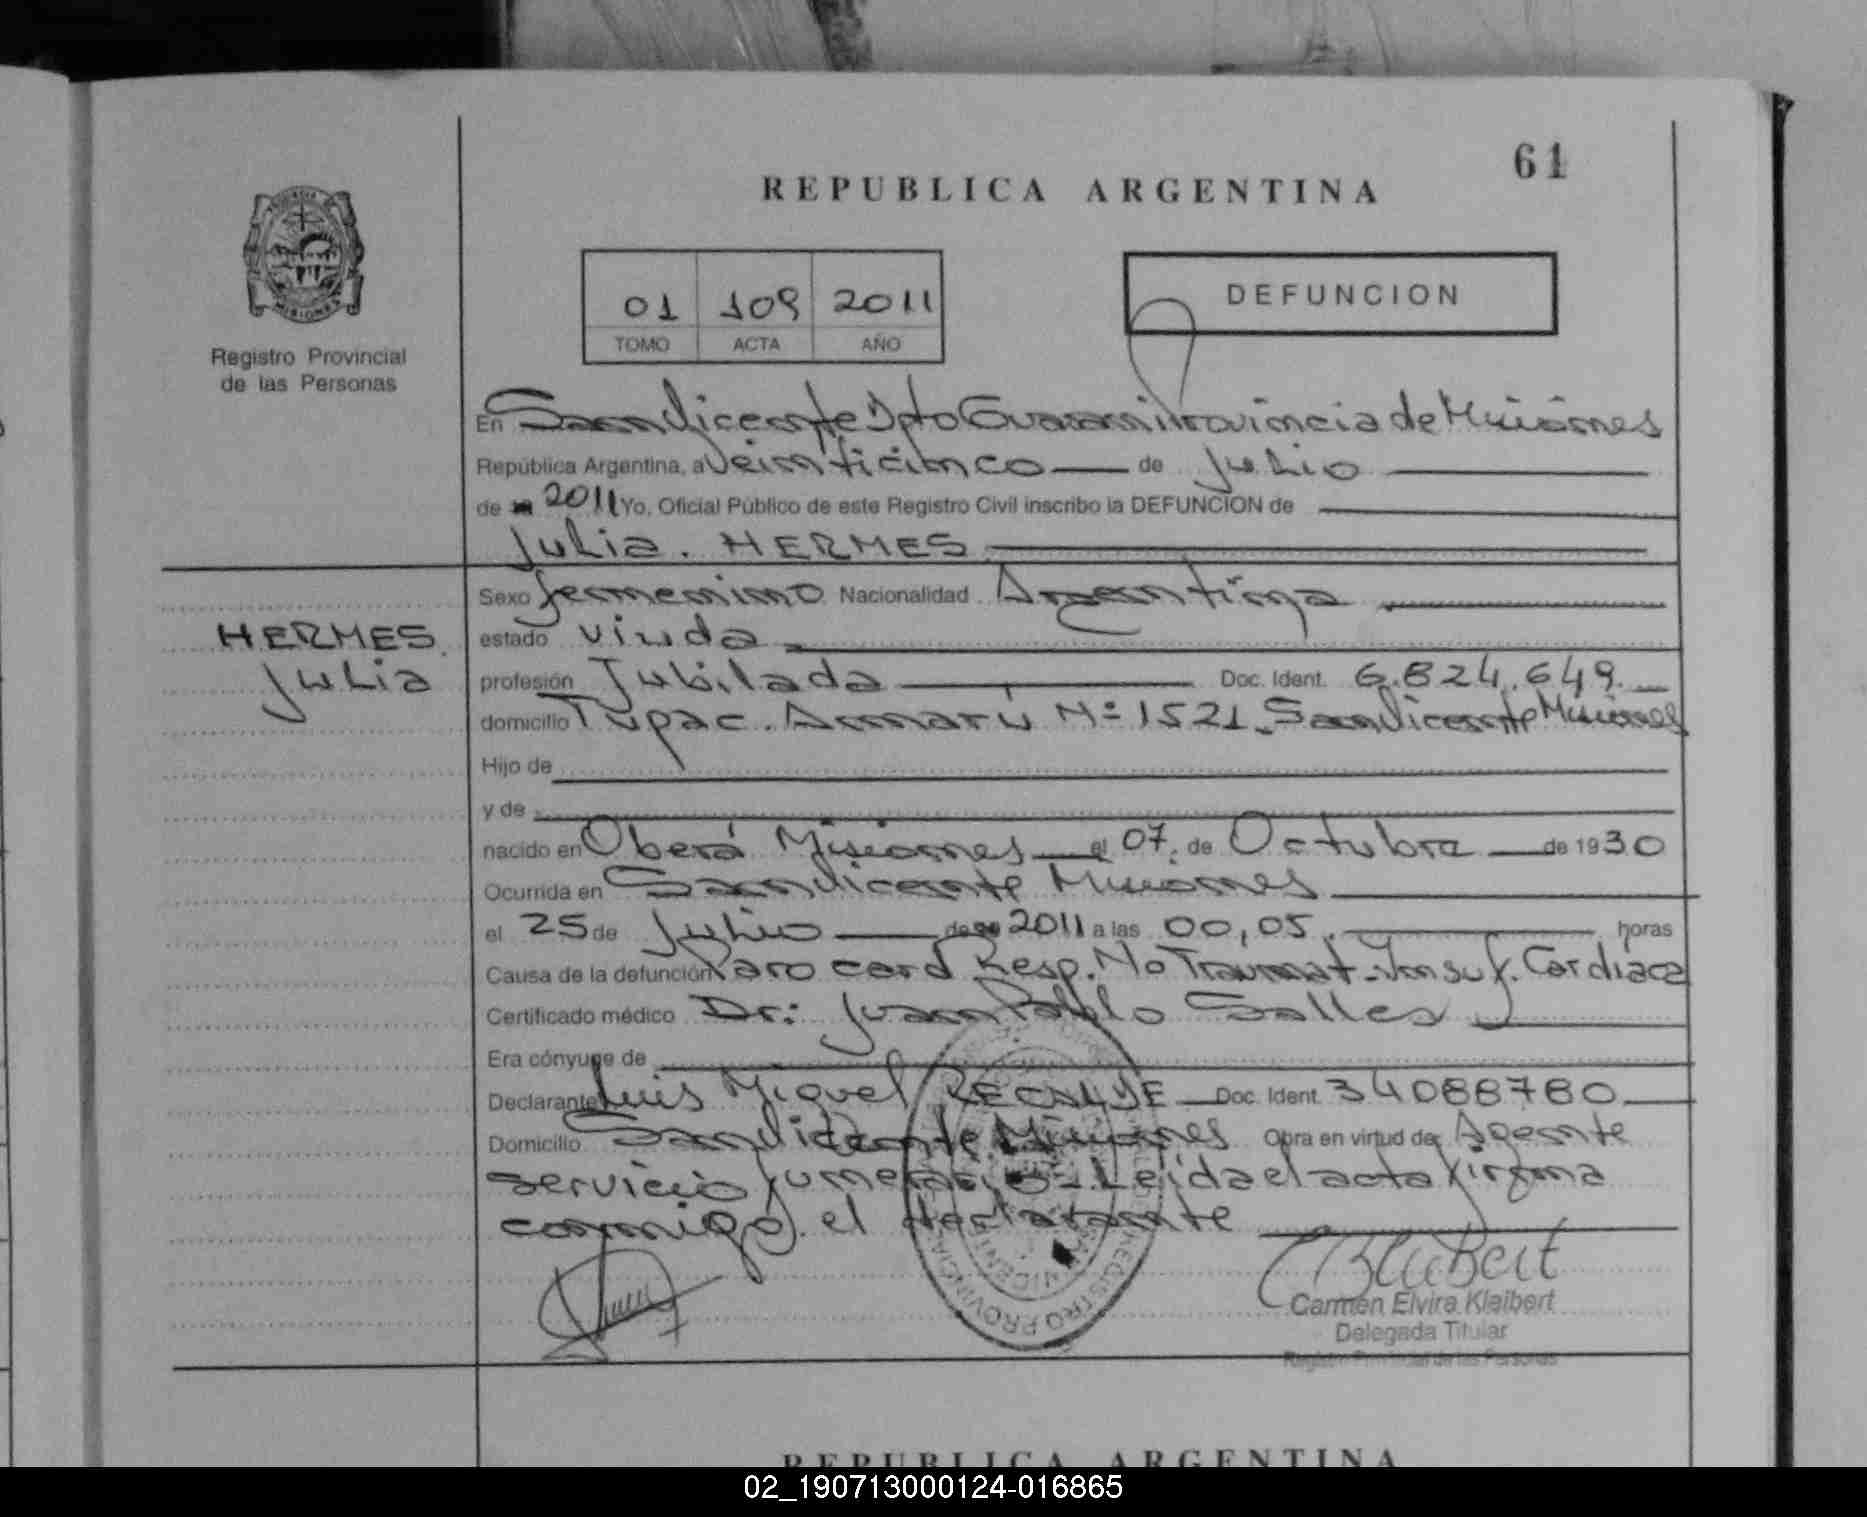 61
REPUBLICA ARGENTINA
MISIONES
Registro Provincial
de las Personas
01 109 2011
TOMO ACTA AÑO
DEFUNCION
En San Vicente Dpto Guaraní Provincia de Misiones
República Argentina, a Veinticinco de Julio
de 2011 Yo, Oficial Público de este Registro Civil inscribo la DEFUNCION de
Julia. HERMES
HERMES
Julia
Sexo femenino Nacionalidad Argentina
estado viuda
profesión Jubilada Doc. Ident. 6.824.649.
domicilio Tupac. Amaru Nº 1521. San Vicente Misiones
Hijo de
y de
nacido en Oberá Misiones el 07. de Octubre de 1930
Ocurrida en San Vicente Misiones
el 25 de Julio de 2011 a las 00,05. horas
Causa de la defunción Paro card Resp. No Traumat - Insuf. Cardiaca
Certificado médico Dr: Juan Pablo Salles
Era cónyuge de
Declarante Luis Miguel Doc. Ident. 34088780
Domicilio San Vicente Misiones Obra en virtud de: Agente
servicio funerario - Leida el acta firma
conmigo. el declarante
REGISTRO PROVINCIAL
SAN VICENTE
Carmen Elvira Klaibert
Delegada Titular
Registro Provincial de las Personas
REPUBLICA ARGENTINA
02_190713000124-016865